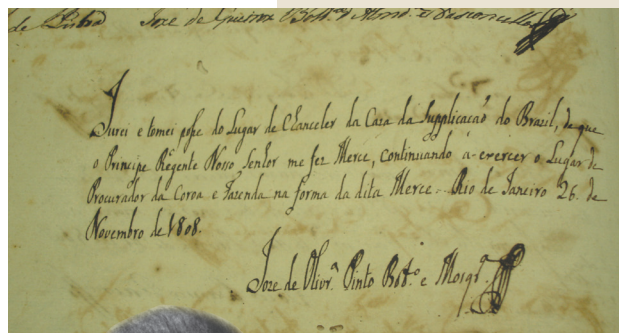 de Lisboa Joze de
Jurei e tomei posse do Lugar de Chanceler da Caza da Supplicaçaõ do Brazil, de que
o Principe Regente Nosso Senhor me fez Merce, continuando a exercer o Lugar de
Procurador da Coroa e Fazenda na forma da dita Merce. Rio de Janeiro 26. de
Novembro de 1808.
Joze de Olivr.ª Pinto Bot.º e Mosqr.ª